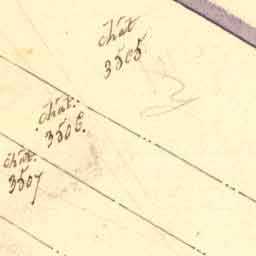 chát
3505
chát.
3506.
chát.
3507